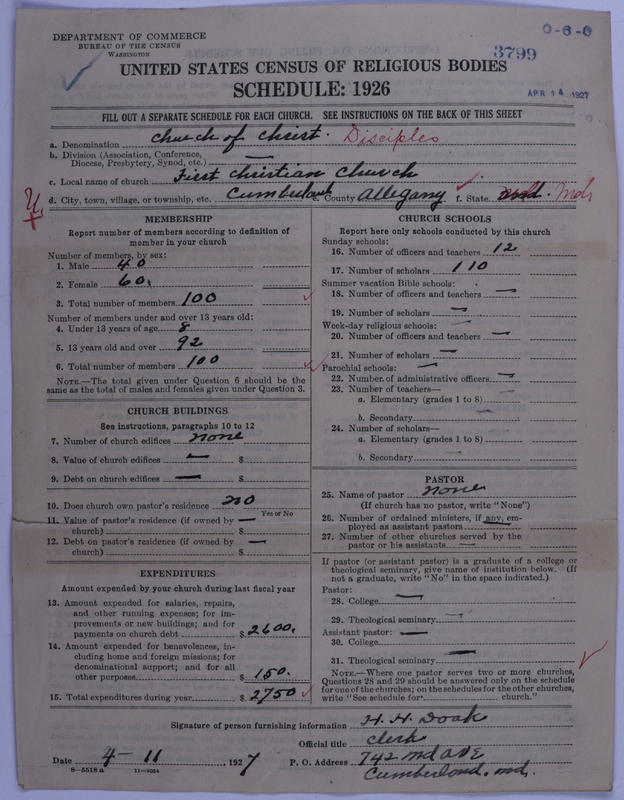 DEPARTMENT OF COMMERCE
BUREAU OF THE CENSUS
WASHINGTON
0-6-0
3799
APR 14 1927
UNITED STATES CENSUS OF RELIGIOUS BODIES
SCHEDULE: 1926
FILL OUT A SEPARATE SCHEDULE FOR EACH CHURCH. SEE INSTRUCTIONS ON THE BACK OF THIS SHEET
a. Denomination Church of Christ. Disciples
b. Division (Association, Conference, Diocese, Presbytery, Synod, etc.) —
c. Local name of church First Christian Church
d. City, town, village, or township, etc. Cumberland e. County Allegany f. State Md. Md.
MEMBERSHIP
Report number of members according to definition of
member in your church
Number of members, by sex:
1. Male 40
2. Female 60.
3. Total number of members 100
Number of members under and over 13 years old:
4. Under 13 years of age 8
5. 13 years old and over 92
6. Total number of members 100
NOTE.—The total given under Question 6 should be the
same as the total of males and females given under Question 3.
CHURCH BUILDINGS
See instructions, paragraphs 10 to 12
7. Number of church edifices none
8. Value of church edifices — $
9. Debt on church edifices — $
10. Does church own pastor's residence no
Yes or No
11. Value of pastor's residence (if owned by —
church) $
12. Debt on pastor's residence (if owned by —
church) $
EXPENDITURES
Amount expended by your church during last fiscal year
13. Amount expended for salaries, repairs,
and other running expenses; for im-
provements or new buildings; and for
payments on church debt $ 2600.
14. Amount expended for benevolences, in-
cluding home and foreign missions; for
denominational support; and for all
other purposes $ 150.
15. Total expenditures during year $ 2750
CHURCH SCHOOLS
Report here only schools conducted by this church
Sunday schools:
16. Number of officers and teachers 12
17. Number of scholars 110
Summer vacation Bible schools:
18. Number of officers and teachers —
19. Number of scholars —
Week-day religious schools: —
20. Number of officers and teachers —
21. Number of scholars —
Parochial schools: —
22. Number of administrative officers —
23. Number of teachers—
a. Elementary (grades 1 to 8) —
b. Secondary —
24. Number of scholars—
a. Elementary (grades 1 to 8) —
b. Secondary —
PASTOR
25. Name of pastor none
(If church has no pastor, write "None")
26. Number of ordained ministers, if any, em-
ployed as assistant pastors —
27. Number of other churches served by the
pastor or his assistants —
If pastor (or assistant pastor) is a graduate of a college or
theological seminary, give name of institution below. (If
not a graduate, write "No" in the space indicated.)
Pastor:
28. College —
29. Theological seminary —
Assistant pastor: —
30. College
31. Theological seminary —
NOTE.—Where one pastor serves two or more churches,
Questions 28 and 29 should be answered only on the schedule
for one of the churches; on the schedules for the other churches,
write "See schedule for church."
Signature of person furnishing information H. H. Doak
Official title Clerk
Date 4-11, 1927 P. O. Address 742 Md Ave
Cumberland. Md.
8-5518 a 11-9054